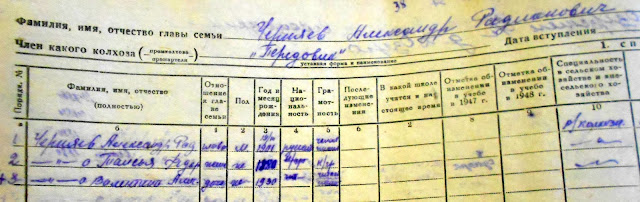 38
Фамилия, имя, отчество главы семьи Черняев Александр Радионович
Член какого колхоза (промколхоза промартели) "Передовик" Дата вступления
уставная форма и наименование
1. Сп
Порядк. № Фамилия, имя, отчество (полностью) Отношение к главе семьи Пол Год и месяц рождения Национальность Грамотность Последующие изменения В какой школе учатся в настоящее время Отметка об изменении в учебе в 1947 г. Отметка об изменении в учебе в 1948 г. Специальность в сельском хозяйстве и вне сельского хозяйства
б 1 2 3 4 5 6 7 8 9 10
1 Черняев Александр Рад глава м 1901 русский р/колхоза
2 —"— а Таисья жена ж н/гр —"—
3 —"— а Валентина Алек- дочь ж 1930 —"—